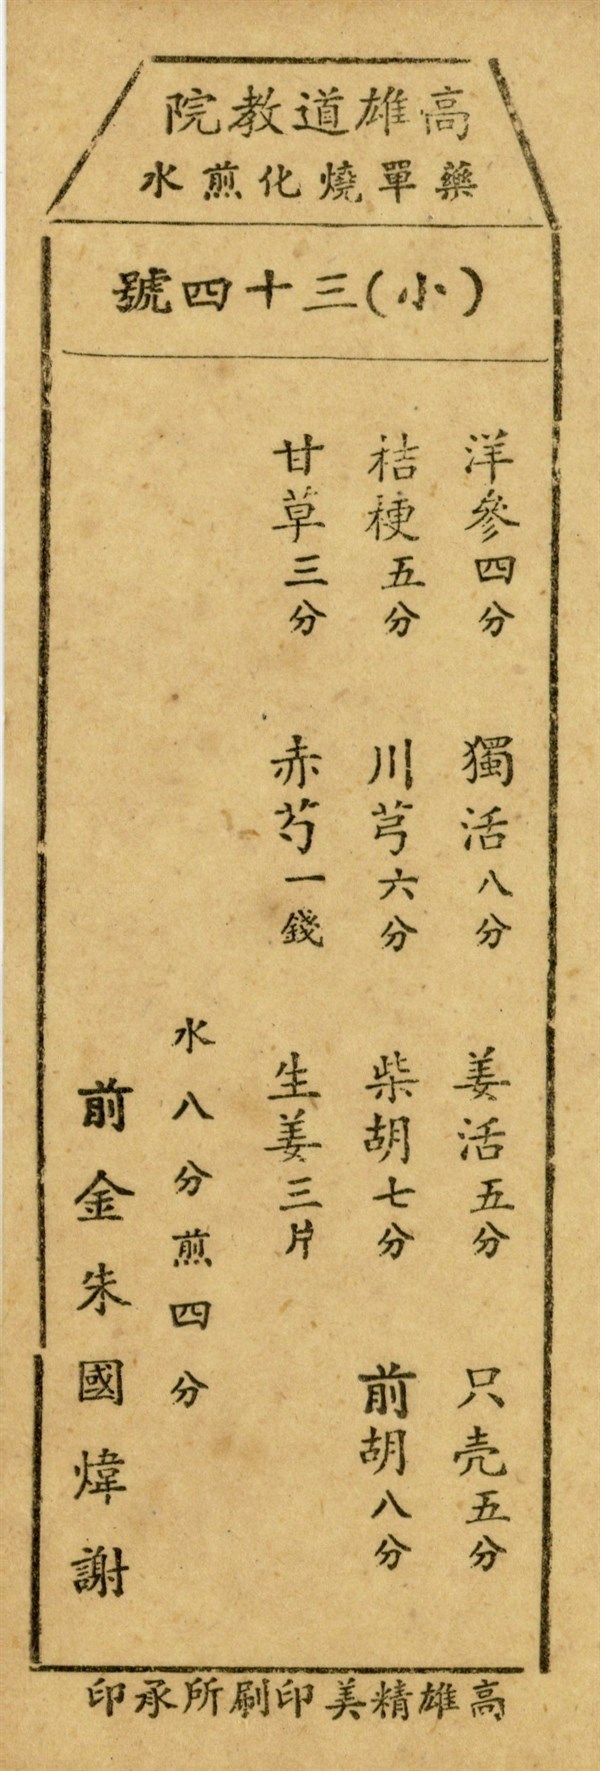 高雄道教院
藥單燒化煎水
(小)三十四號
洋參四分 獨活八分 姜活五分 只壳五分
桔梗五分 川芎六分 柴胡七分 前胡八分
甘草三分 赤芍一錢 生姜三片
水八分煎四分
前金朱國煒謝
高雄精美印刷所承印